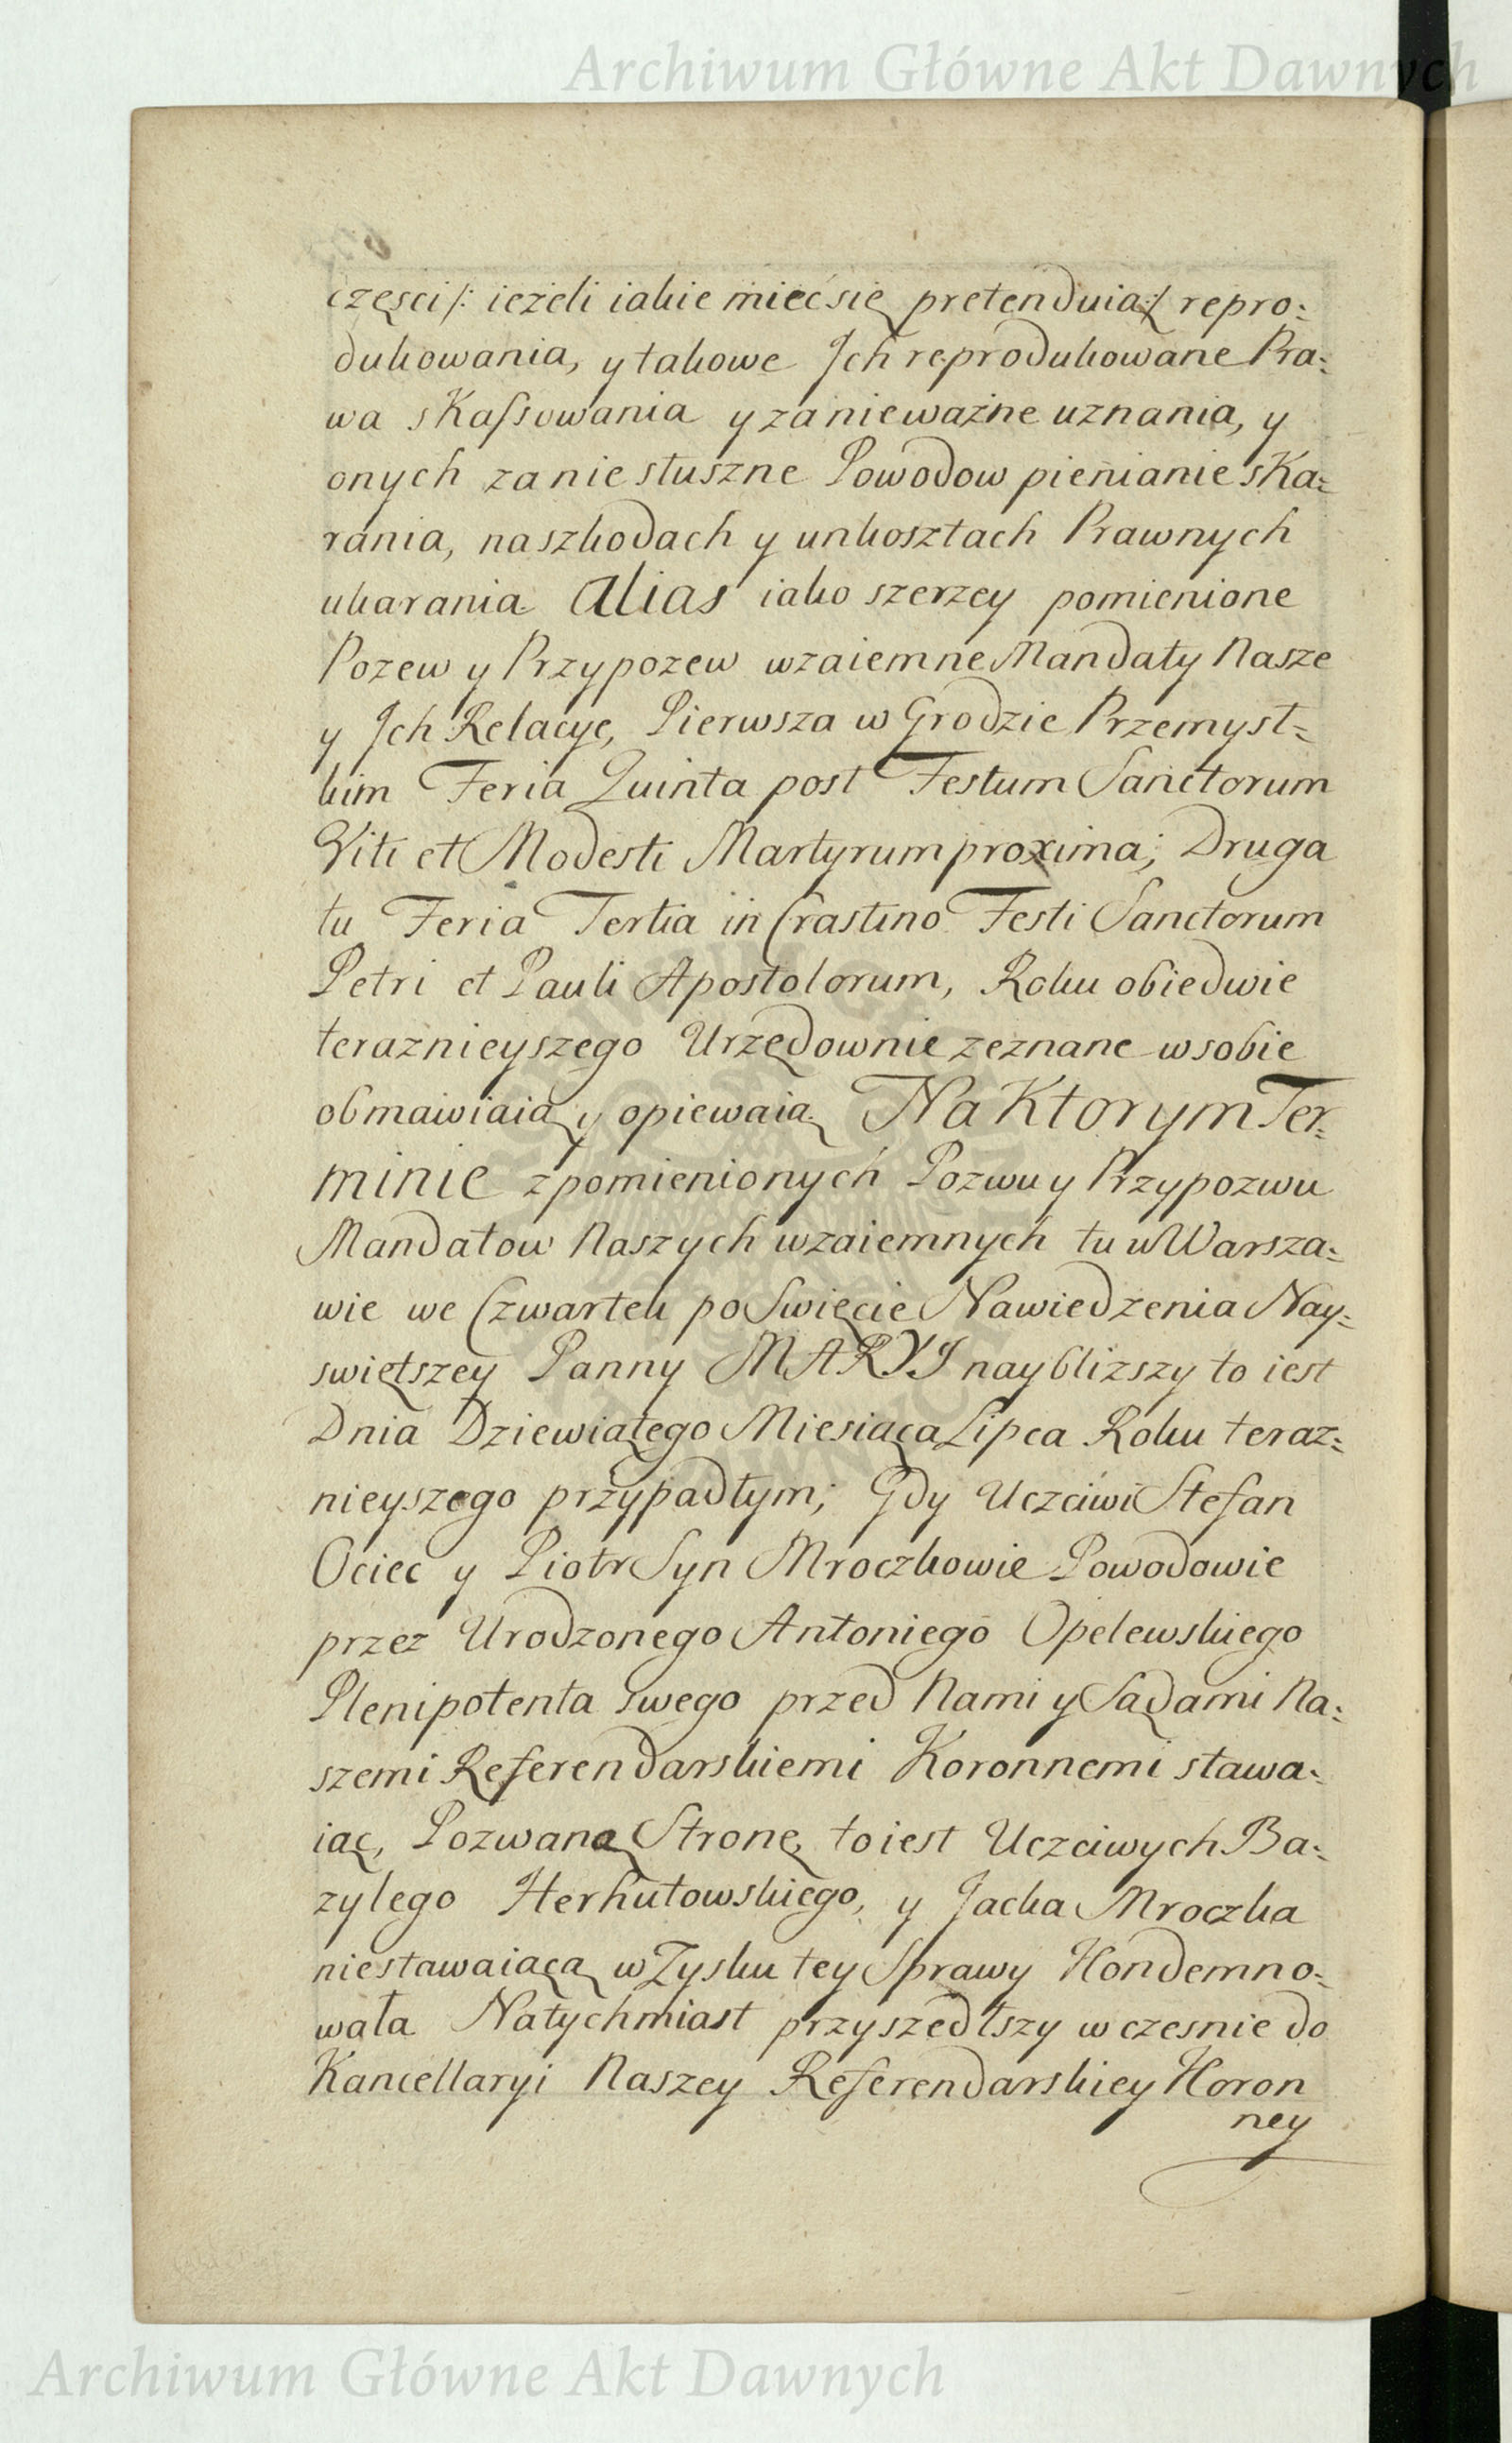 Archiwum Główne Akt Dawnych
częsci/: ieżeli iakie miećsię pretenduią:/ repro:
dukowania, y takowe Jch reprodukowane Pra:
wa skassowania y zanieważne uznania, y
onych zaniesłuszne Powodow pienianie ska:
rania, naszkodach y unkosztach Prawnych
ukarania alias iako szerzey pomienione
Pozew y Przypozew wzaiemne Mandaty Nasze
y Jch Relacye, Pierwsza w Grodzie Przemysl:
kim Feria Quinta post Festum Sanctorum
Viti et Modesti Martyrum proxima; Druga
tu Feria Tertia in Crastino Festi Sanctorum
Petri et Pauli Apostolorum, Roku obiedwie
teraznieyszego Urzędownie zeznane wsobie
obmawiaią y opiewaią Na Ktorym Ter:
minie zpomienionych Pozwu y Przypozwu
Mandatow Naszych wzaiemnych tu w Warsza:
wie we Czwartek po Swięcie Nawiedzenia Nay:
swiętszey Panny MARYJ naybliższy to iest
Dnia Dziewiątego Miesiąca Lipca Roku teraz:
nieyszego przypadłym; Gdy Uczciwi Stefan
Ociec y Piotr Syn Mroczkowie Powodowie
przez Urodzonego Antoniego Opelewskiego
Plenipotenta swego przed Nami y Sądami Na:
szemi Referendarskiemi Koronnemi stawa:
iąc, Pozwaną Stronę, toiest Uczciwych Ba:
zylego Herhutowskiego, y Jacka Mroczka
niestawaiącą w Zysku tey Sprawy Kondemno:
wała Natychmiast przyszedłszy wczesnie do
Kancellaryi Naszey Referendarskiey Koron
ney
Archiwum Główne Akt Dawnych